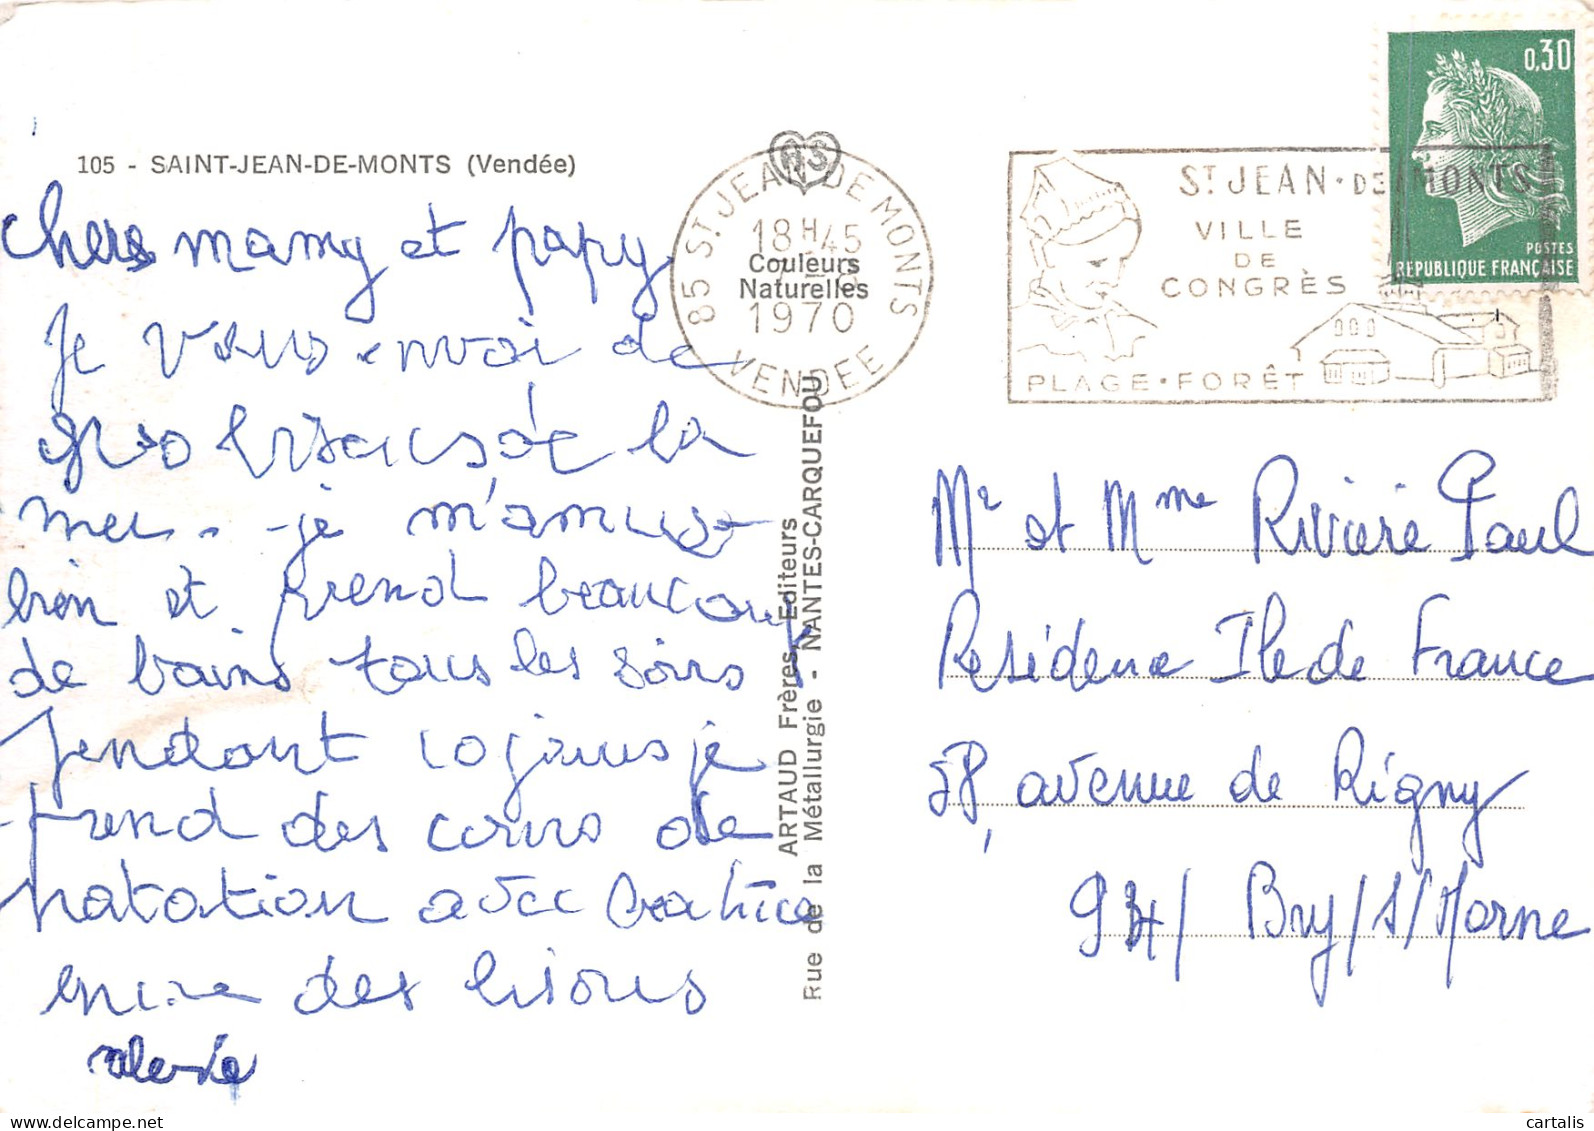 105 - SAINT-JEAN-DE-MONTS (Vendée)
Chers mamy et papy
je vous envoi de
gro bisous de la
mer. je m'amuse
bien et prend beaucoup
de bains tous les soirs
pendant 10 jours je
prend des cours de
natation avec Beatrice
encore des bisous
Valérie
HS
Couleurs
Naturelles
ARTAUD Frères, Editeurs
Rue de la Métallurgie - NANTES-CARQUEFOU
85 ST JEAN DE MONTS
18H45
1970
VENDEE
ST JEAN·DE MONTS
VILLE
DE
CONGRÈS
PLAGE·FORÊT
0,30
POSTES
REPUBLIQUE FRANÇAISE
Mr et Mme Rivière Paul
Résidence Ile de France
58, avenue de Rigny
94/ Bry/s/Marne
cartalis